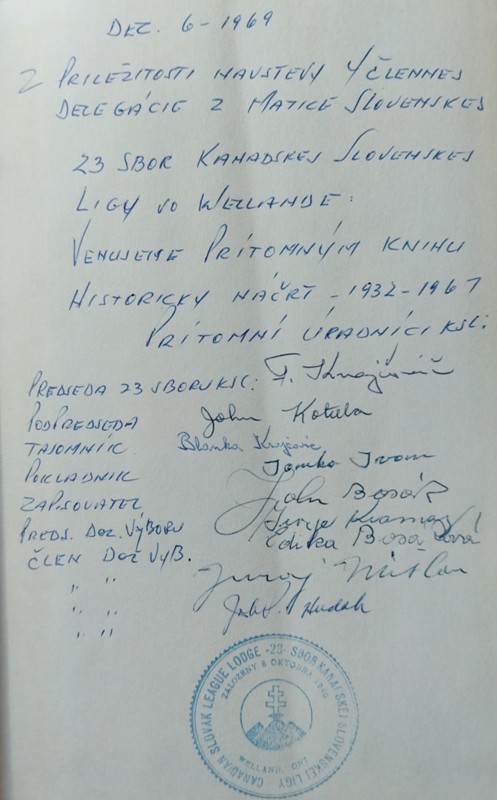 DEZ. 6 - 1969
Z PRILEŽITOSTI NAVSTEVY 4 ČLENNEJ
DELEGÁCIE Z MATICE SLOVENSKEJ
23 SBOR KANADSKEJ SLOVENSKEJ
LIGY VO WELLANDE:
VENUJEME PRÍTOMNÝM KNIHU
HISTORICKY NÁČRT - 1932-1967
PRÍTOMNÍ ÚRADNÍCI KSL:
PREDSEDA 23 SBORU KSL: F. Krajčovič
PODPREDSEDA John Kotula
TAJOMNÍK Blanka Krajčovic
POKLADNIK Janiko Ivan
ZAPISOVATEL John Bosák
PREDS. DOZ. VÝBORU
ČLEN DOZ VÝB. Edika Bosáková
" " Juraj
" " John Hudak
" "
CANADIAN SLOVAK LEAGUE LODGE -23- SBOR KANADSKEJ SLOVENSKEJ LIGY
ZALOŽENY 8 OKTOBRA
WELLAND, ONT.